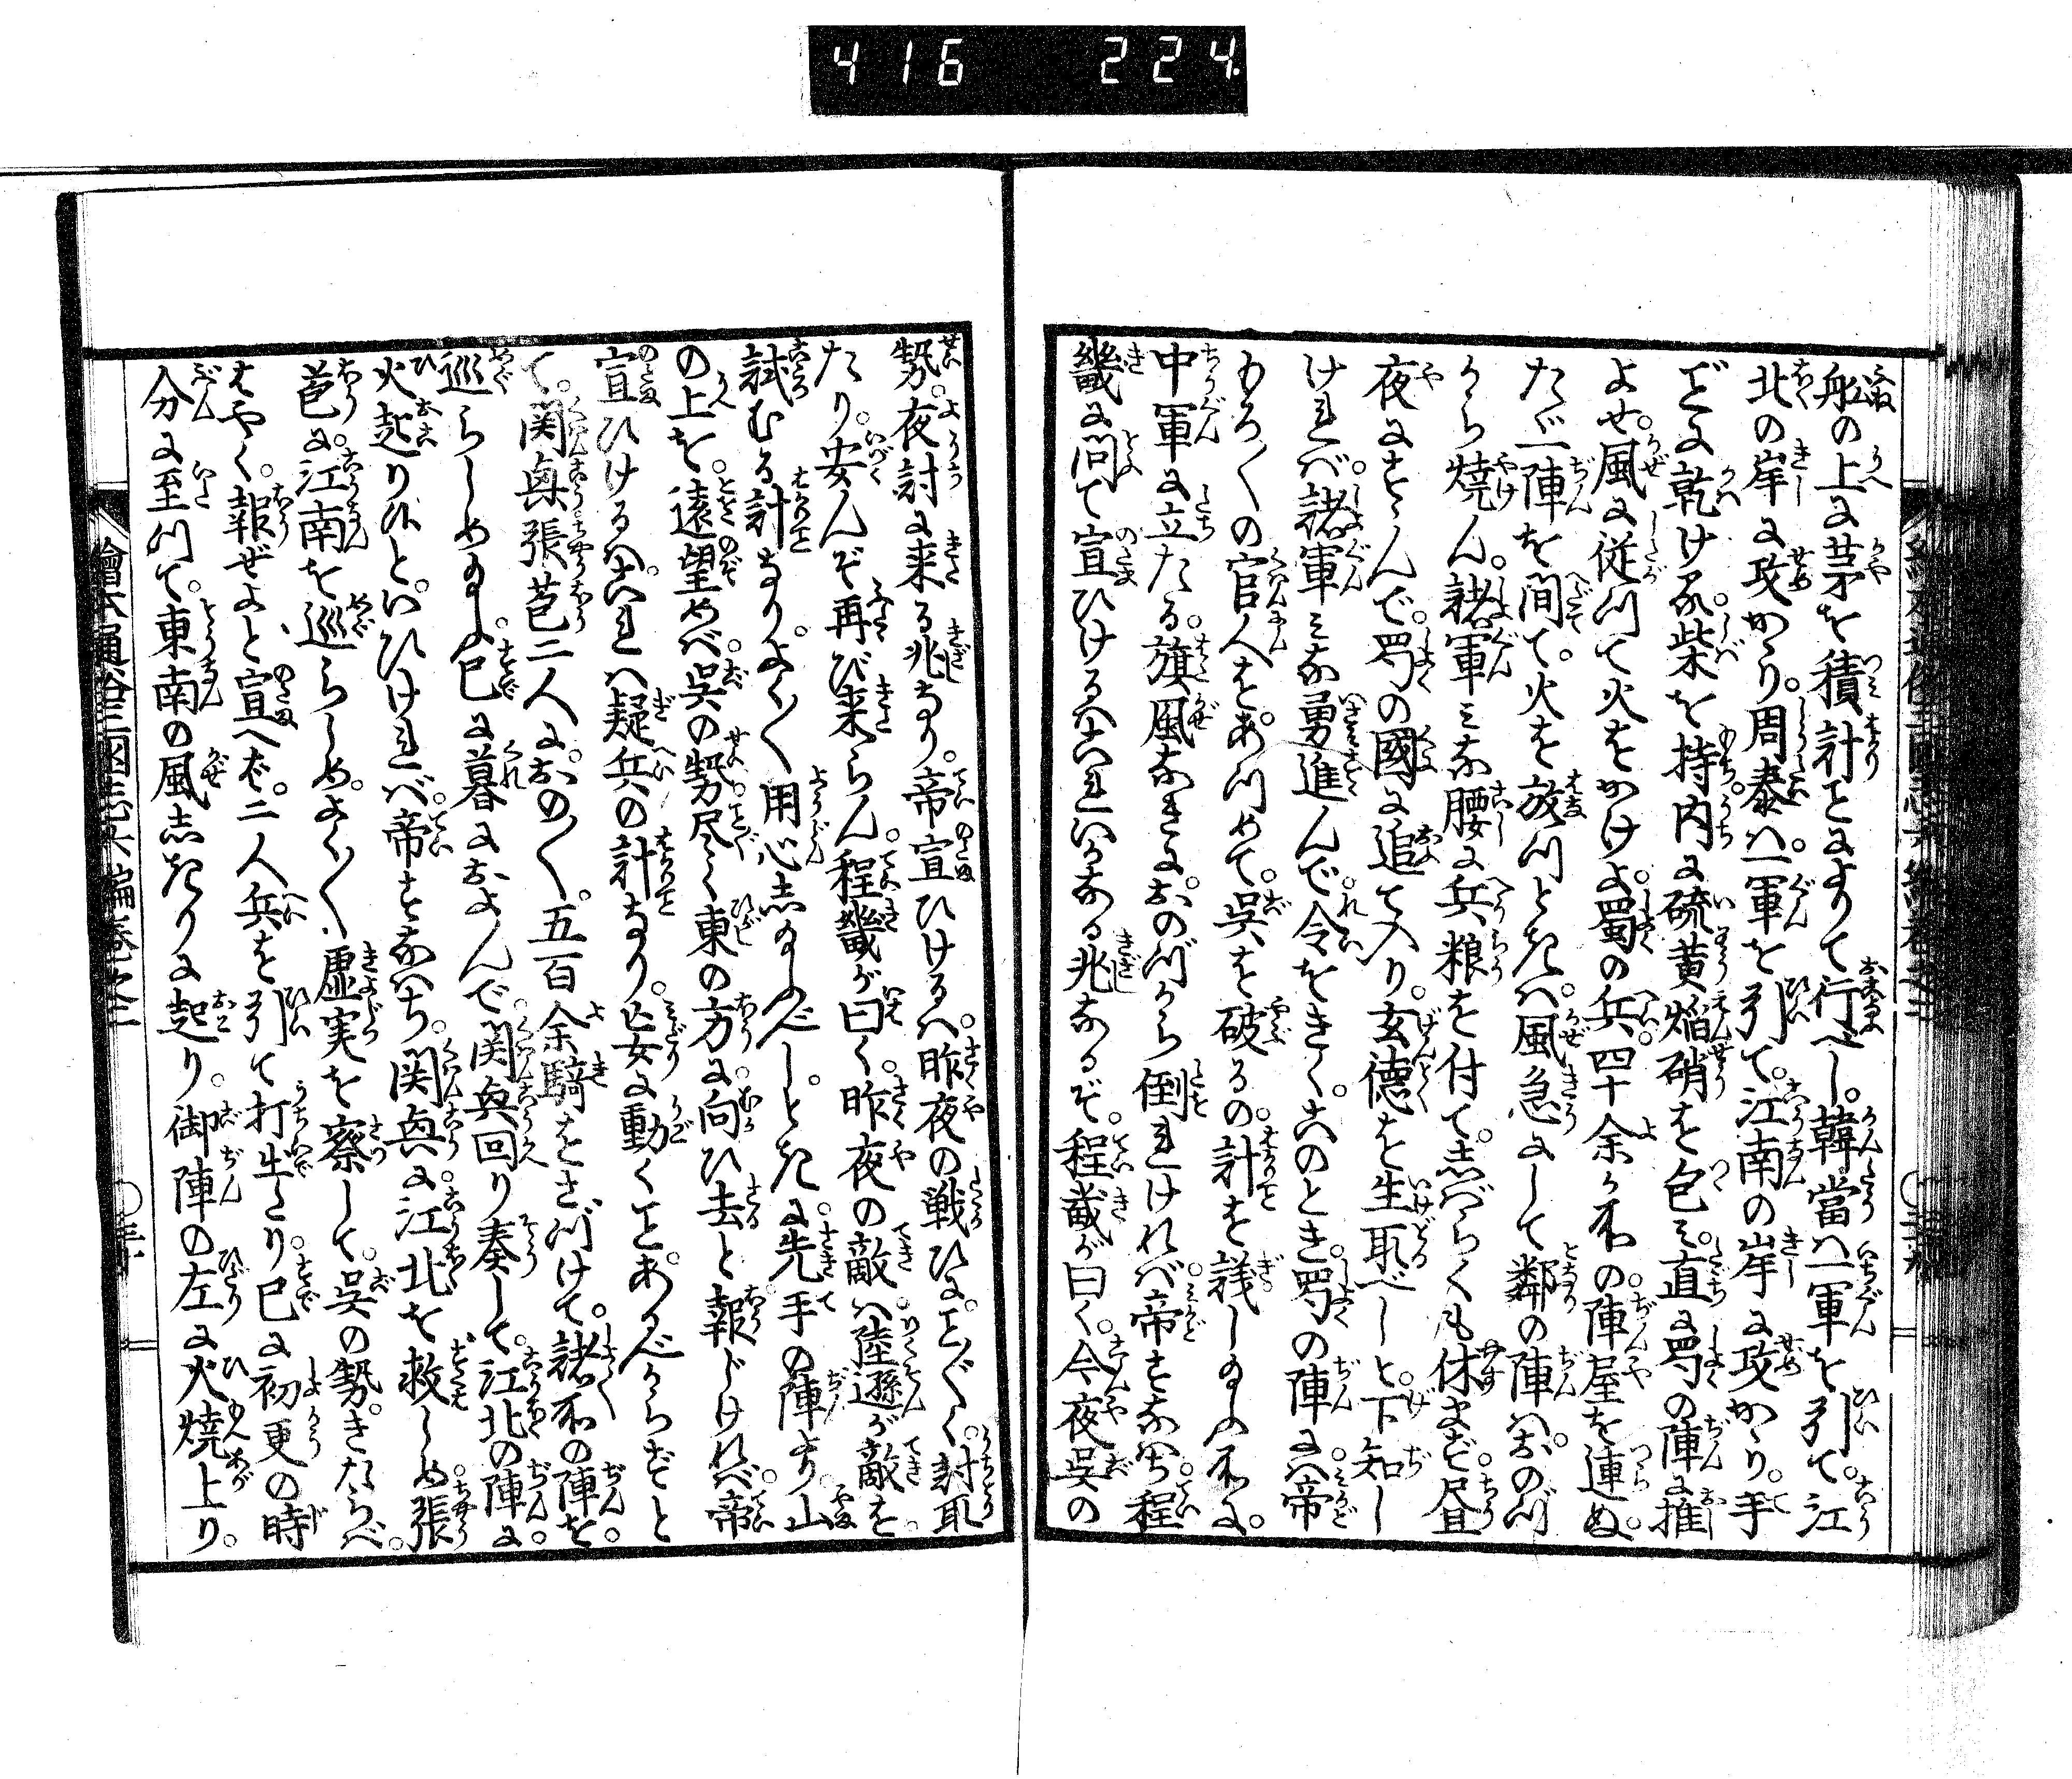 416 224
船の上に茅を積計ことによりて行べし。韓當は一軍を引て。江
北の岸に攻かゝり。周泰は一軍を引て。江南の岸に攻かゝり。手
ごとに乾ける。柴を持。内に硫黄焔硝を包ミ。直に蜀の陣に推
よせ。風に従つて火をかけよ。蜀の兵四十余ヶ所の。陣屋を連ぬ。
たゞ一陣を間て。火を放つときは。風急にして鄰の陣は。おのづ
から焼ん。諸軍ミな腰に兵粮を付て。志ばらくも休まず。昼
夜にすゝんで。蜀の國に追て入り。玄徳を生取べしと。下知し
けれバ。諸軍ミな勇進んで。令をきく。このとき。蜀の陣にハ。帝
もろ〳〵の官人をあつめて。呉を破るの。計を議し給ふ所に。
中軍に立たる。旗風なきに。おのづから倒れけれバ。帝すなハち。程
畿に問て宣ひけるハ。これいかなる兆なるぞ。程畿が曰く。今夜呉の
勢。夜討に来る兆なり。帝宣ひけるハ。昨夜の戦ひに。こと〴〵く。討取
たり。安んぞ再び来らん。程畿が曰く。昨夜の敵ハ。陸遜が敵を。
試むる計なり。よく〳〵用心志給ふべしと。ときに。先手の陣より。山
の上を。遠望めバ。呉の勢。尽く東の方に。向ひ去ると報じけれバ。帝
宣ひけるハ。これハ疑兵の計なり。妄に動くこと。あるべからずと
て。関興張苞二人に。おの〳〵。五百余騎をさづけて。諸所の陣を。
巡らしめ給ふに。已に暮におよんで。関興回り奏して。江北の陣に。
火起りたりと。いひけれバ。帝すなハち。関興に。江北を救しめ。張
苞に。江南を巡らしめ。よく〳〵。虚実を察して。呉の勢。きたらバ。
はやく。報ぜよと宣へバ。二人兵を引て打出たり。已に初更の時
分に至つて。東南の風志きりに起り。御陣の左に火焼上り。
繪本通俗三國志六編巻之二